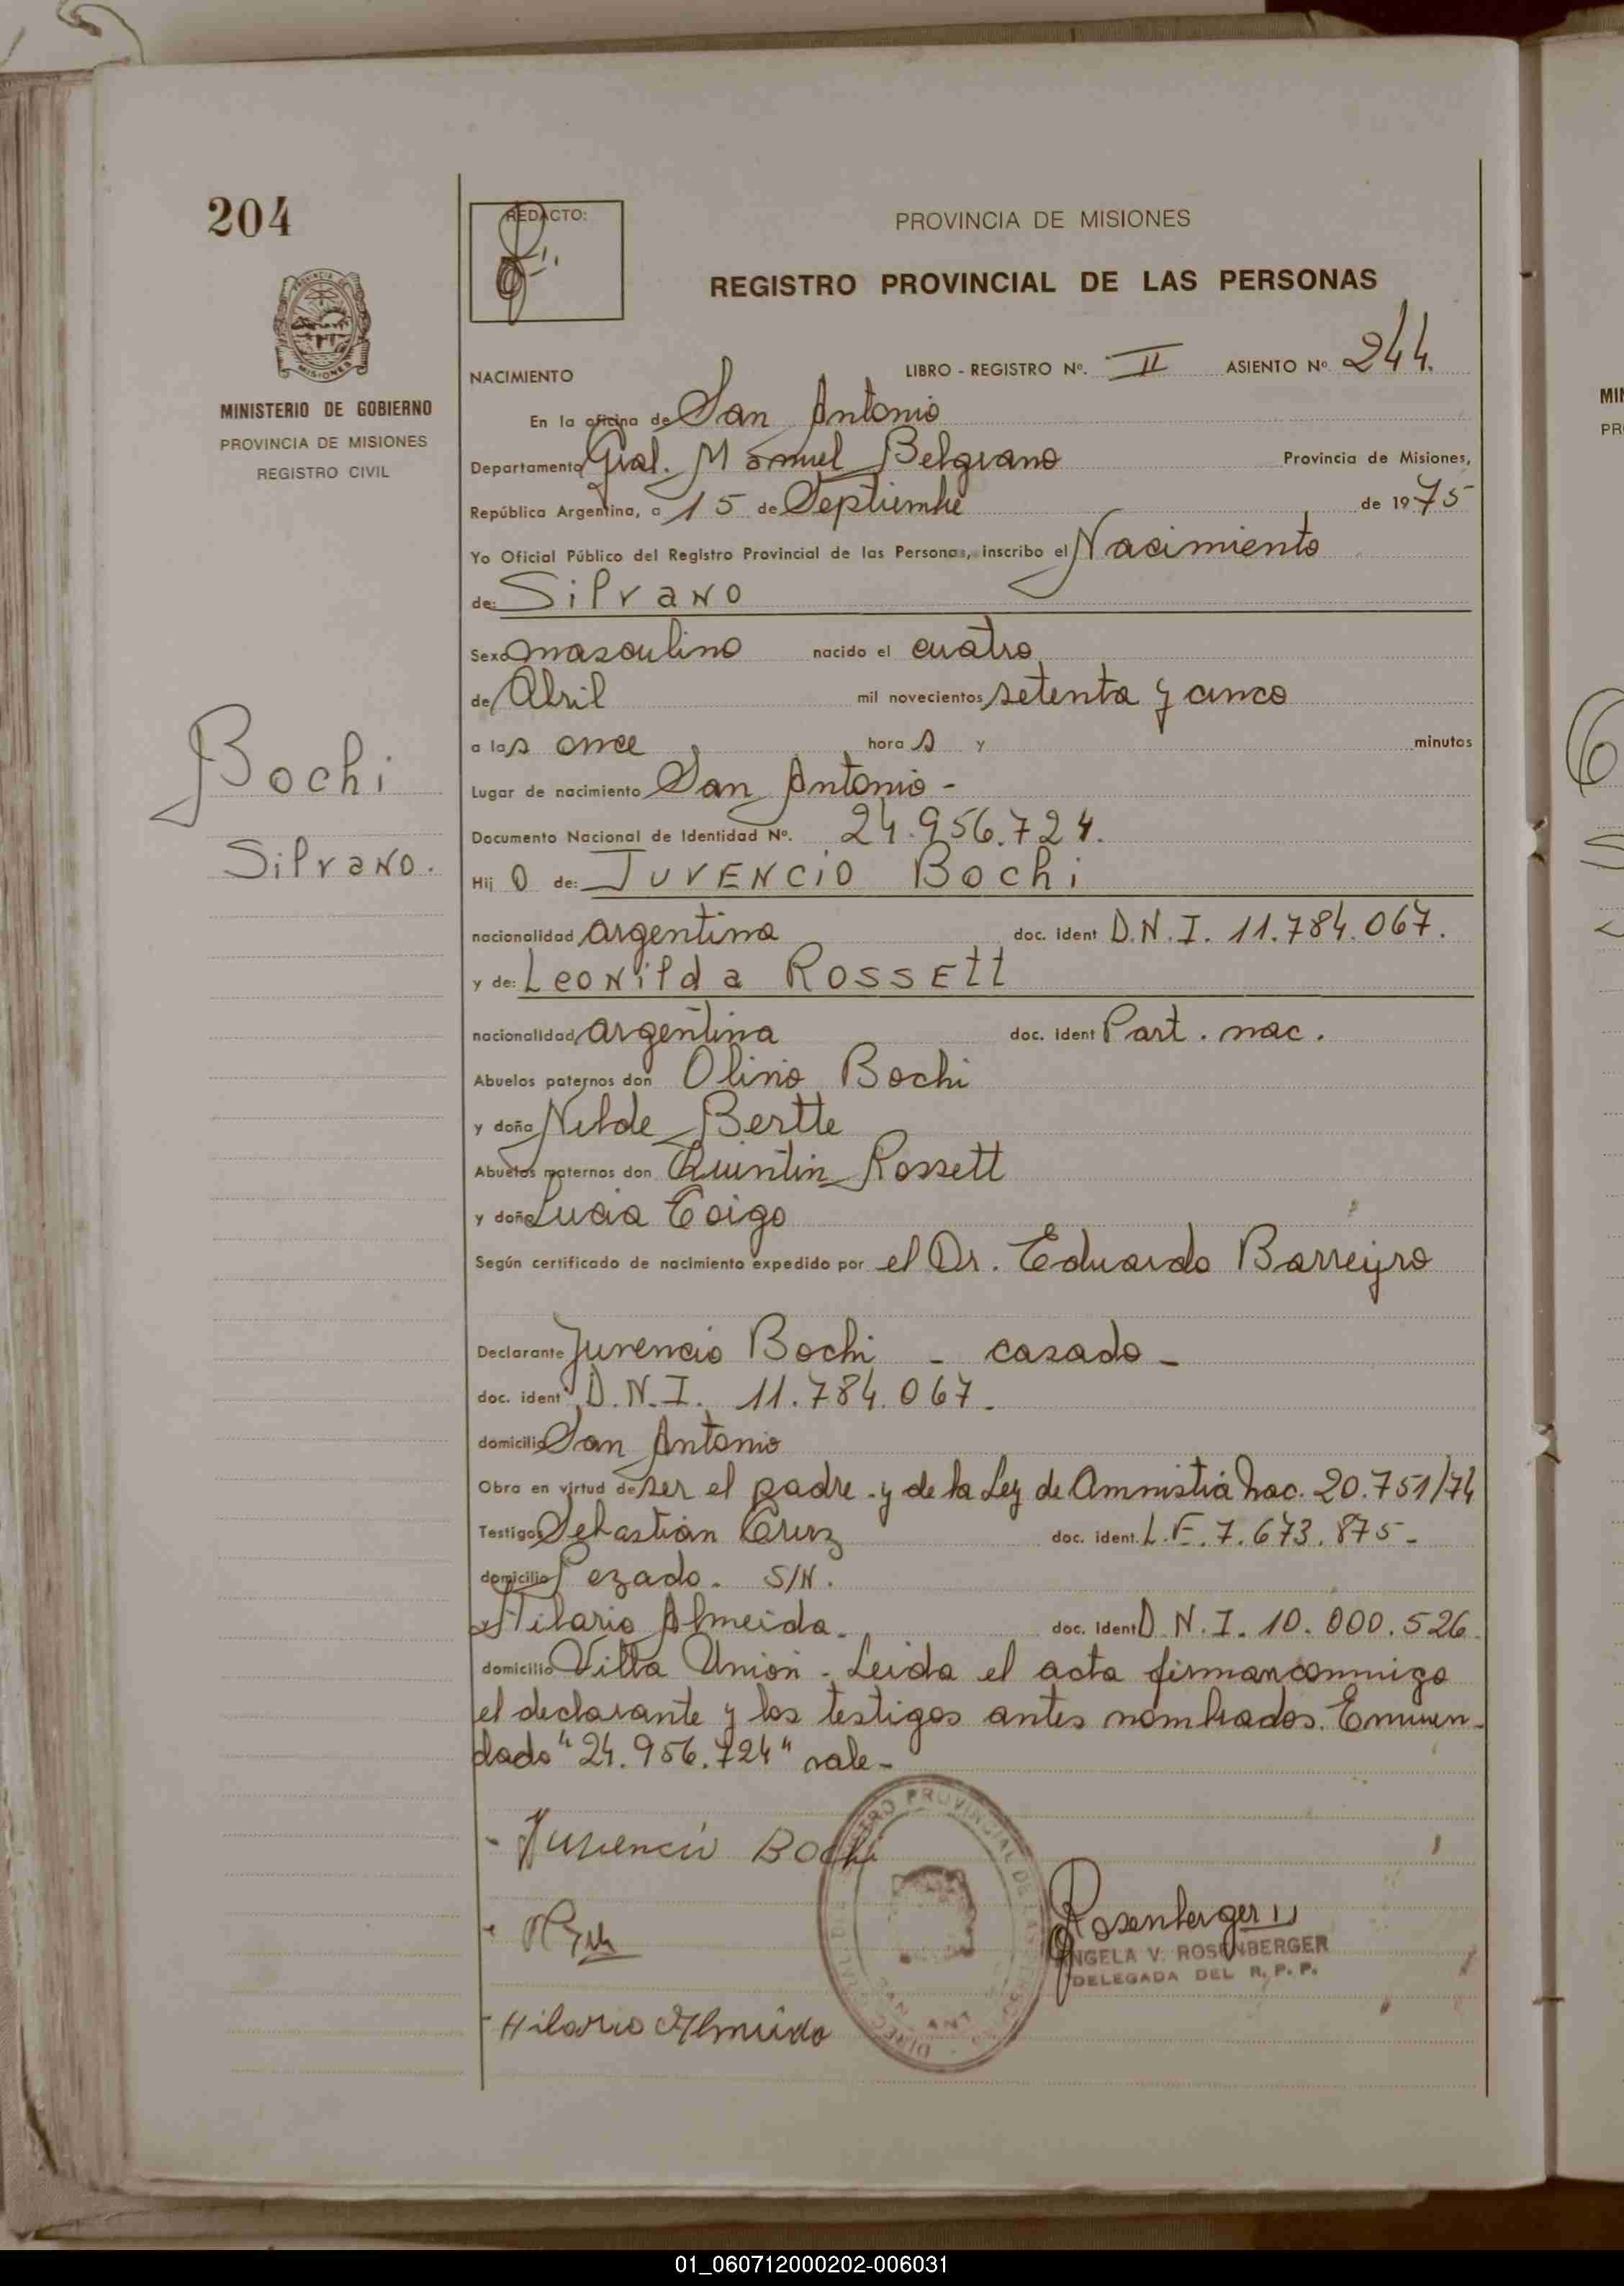 204
REDACTO:
PROVINCIA DE MISIONES
REGISTRO PROVINCIAL DE LAS PERSONAS
MINISTERIO DE GOBIERNO
PROVINCIA DE MISIONES
REGISTRO CIVIL
NACIMIENTO LIBRO - REGISTRO Nº. II ASIENTO Nº 244.
En la oficina de San Antonio
Departamento Gral. Manuel Belgrano Provincia de Misiones,
República Argentina, a 15 de Septiembre de 1975
Yo Oficial Público del Registro Provincial de las Personas, inscribo el Nacimiento
de: Silvano
Sexo masculino nacido el cuatro
de Abril mil novecientos setenta y cinco
a las once horas y minutos
Bochi
Silvano.
Lugar de nacimiento San Antonio -
Documento Nacional de Identidad Nº. 24.956.724.
Hijo de: Juvencio Bochi
nacionalidad argentina doc. ident D.N.I. 11.784.067.
y de: Leonilda Rossett
nacionalidad argentina doc. ident Part. nac.
Abuelos paternos don Olino Bochi
y doña Nilde Bertte
Abuelos maternos don Quintin Rossett
y doña Lucia Toigo
Según certificado de nacimiento expedido por el Dr. Eduardo Barreyro
Declarante Juvencio Bochi - casado -
doc. ident D.N.I. 11.784.067.
domicilio San Antonio
Obra en virtud de ser el padre - y de la Ley de Amnistia Nac. 20.751/74
Testigos Sebastián Cruz doc. ident. L.E. 7.673.875 -
domicilio Pozado. S/N.
y Hilario Almeida. doc. ident D.N.I. 10.000.526
domicilio Villa Unión - Leida el acta firman conmigo
el declarante y los testigos antes nombrados. Enmen-
dado "24.956.724" vale -
- Juvencio Bochi
Rosenberger
ANGELA V. ROSENBERGER
DELEGADA DEL R. P. P.
- Hilario Almeida
01_060712000202-006031